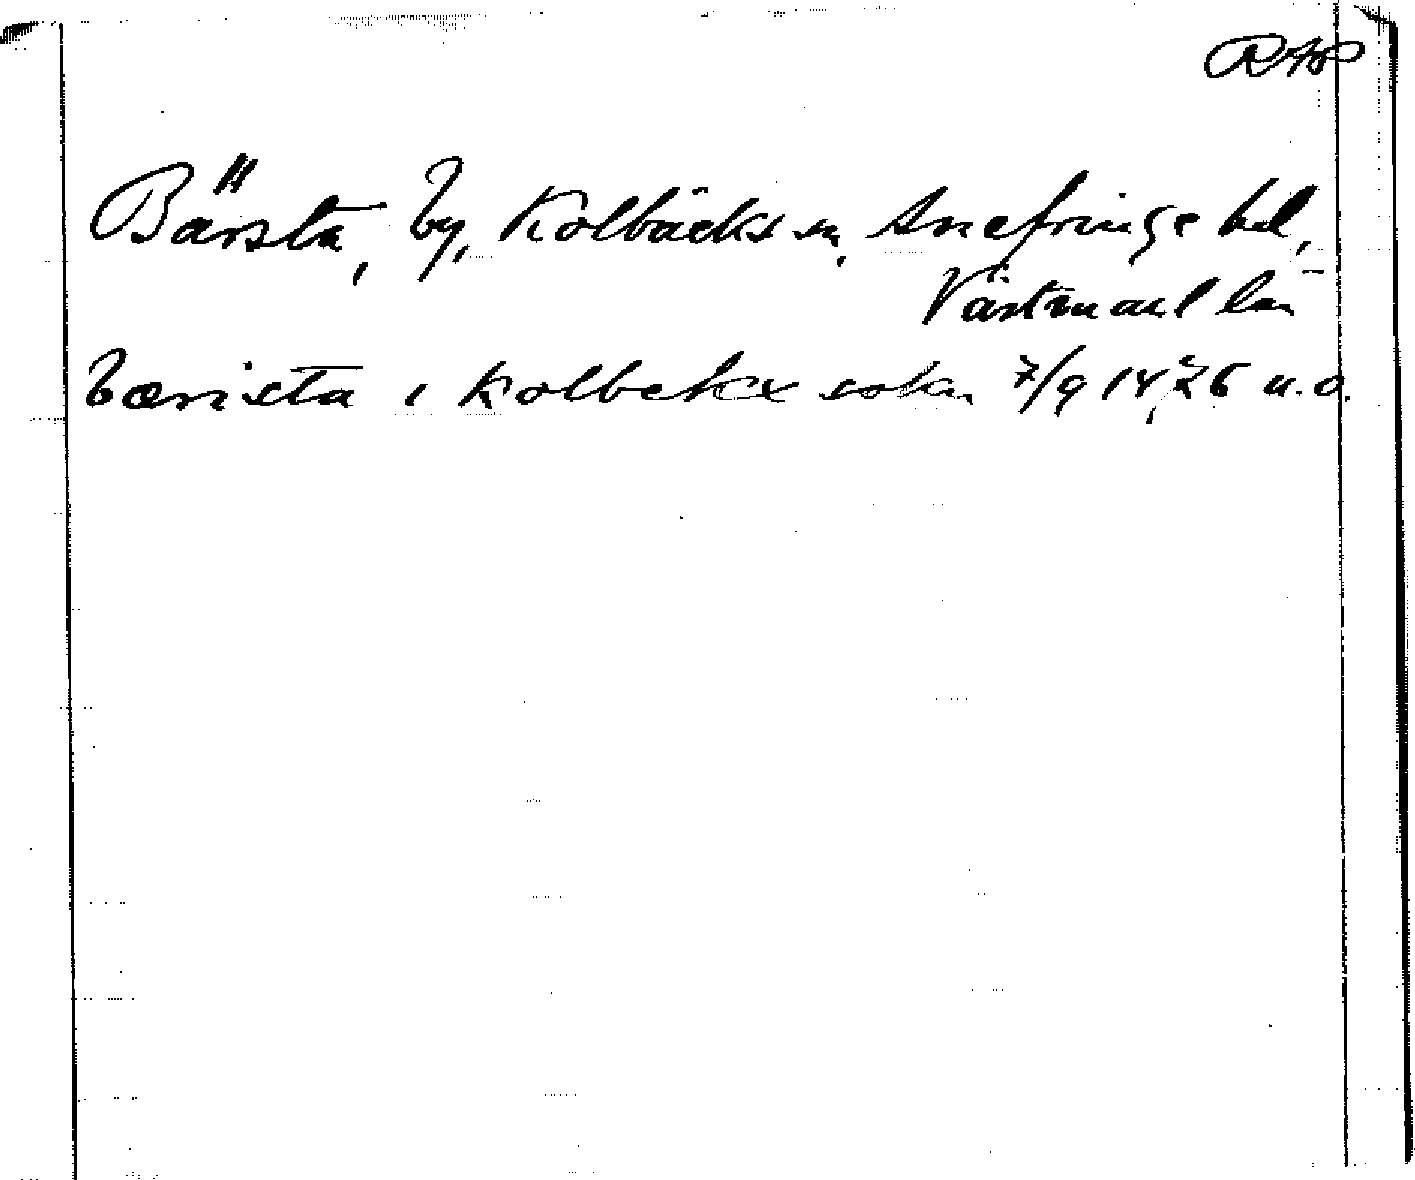 RAP
Bärsta, by, Kolbäcks sn, Snefringe hd,
Västmanl län
bærista i kolbekx sokn 7/9 1476 u.o.